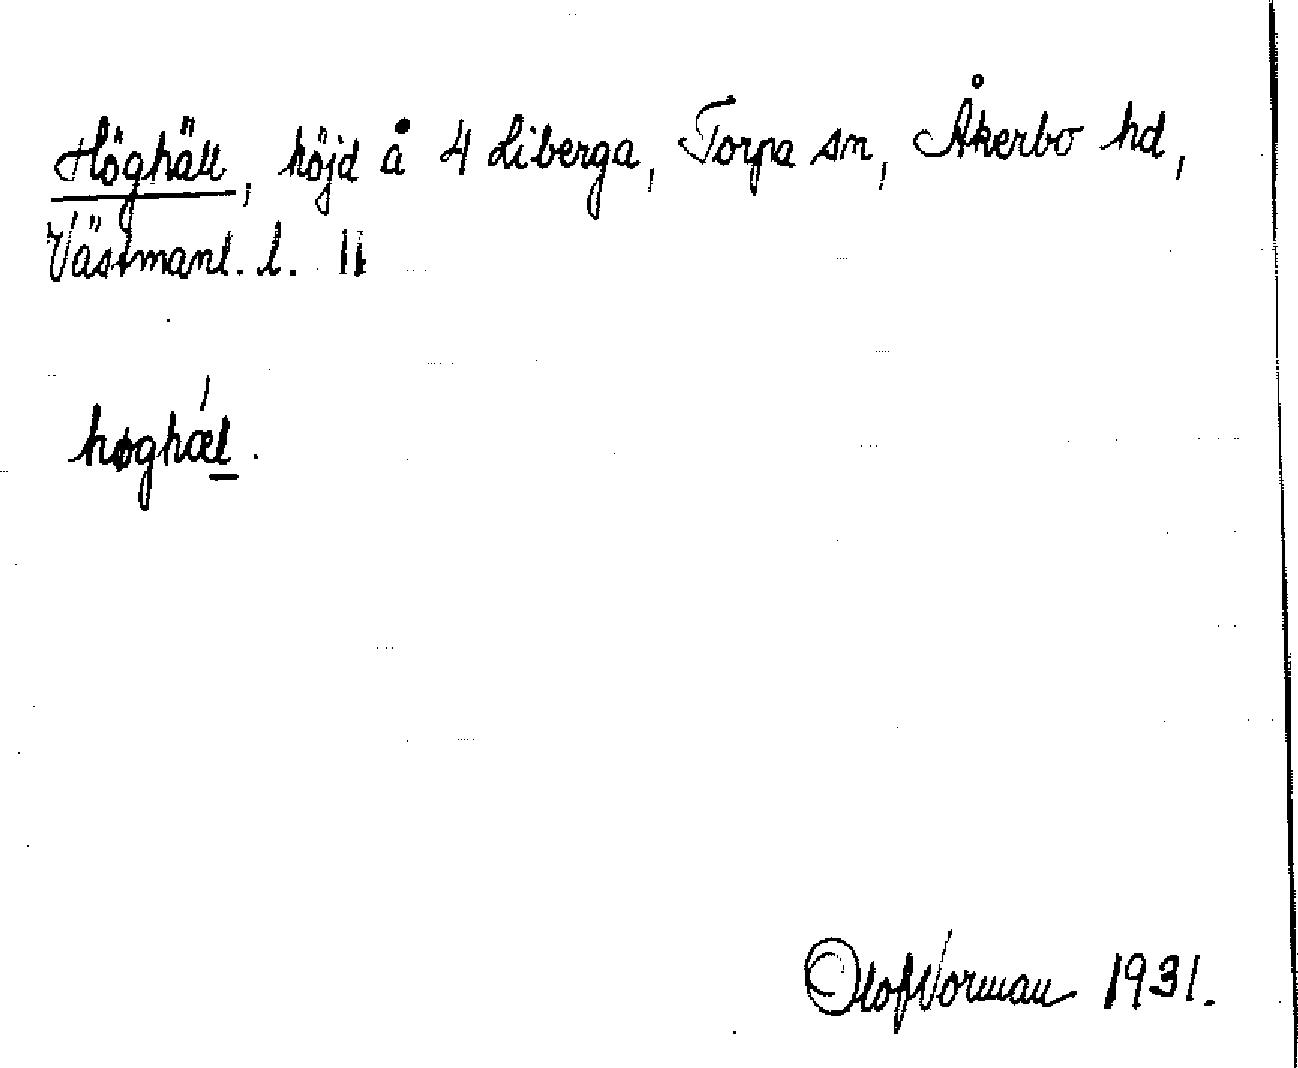 Höghäll, höjd å 4 Liberga, Torpa sn, Åkerbo hd,
Västmanl. l. 11
høghæl.
Olof Vorman 1931.